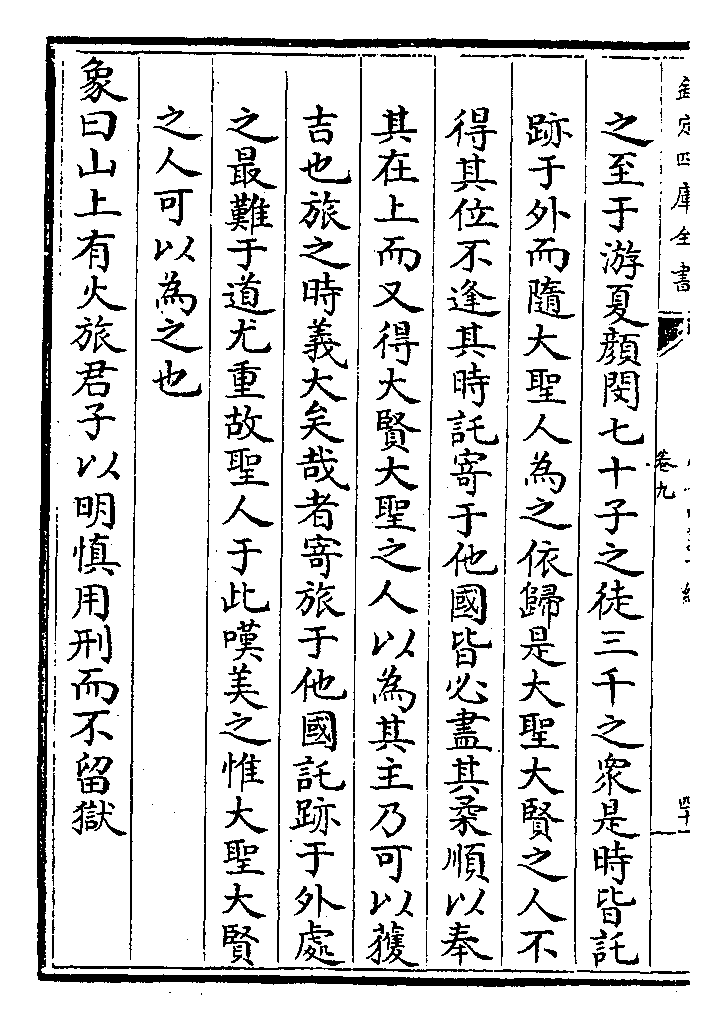 欽定四庫全書
卷九
之至于游夏顔閔七十子之徒三千之衆是時皆託
跡于外而隨大聖人為之依歸是大聖大賢之人不
得其位不逢其時託寄于他國皆必盡其柔順以奉
其在上而又得大賢大聖之人以為其主乃可以獲
吉也旅之時義大矣哉者寄旅于他國託跡于外處
之最難于道尤重故聖人于此嘆美之惟大聖大賢
之人可以為之也
象曰山上有火旅君子以明慎用刑而不留獄